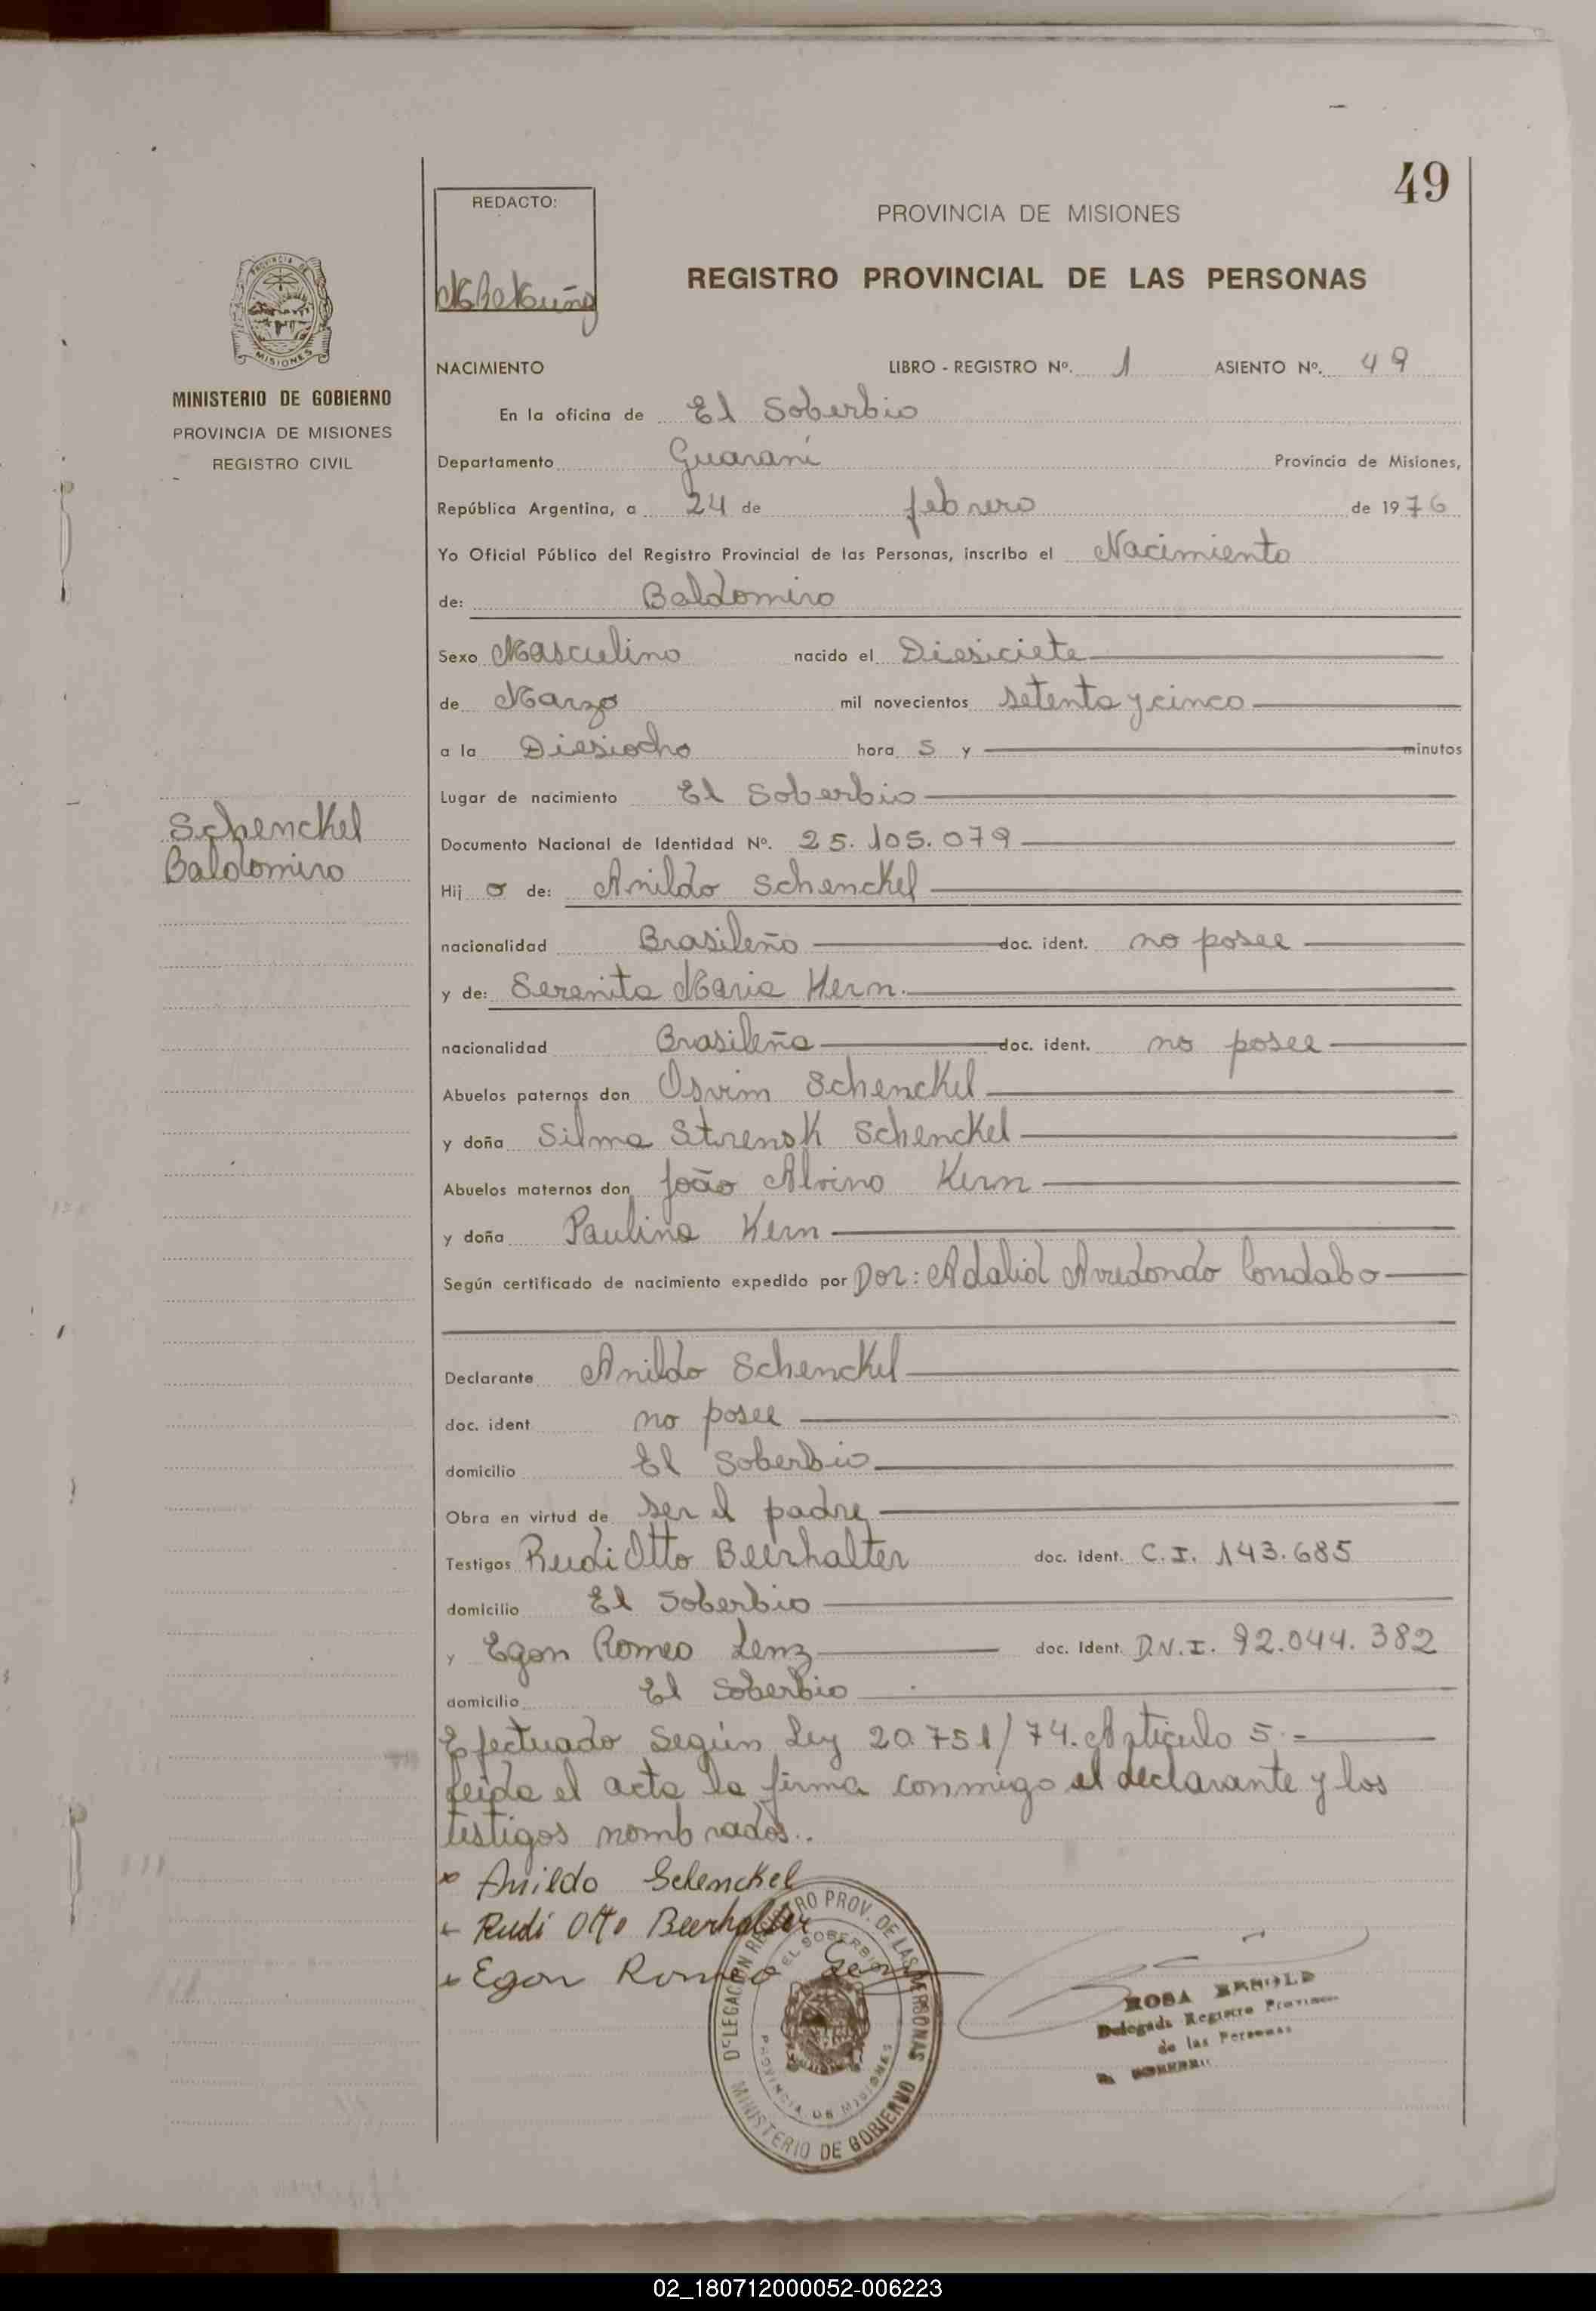 49
REDACTO:
PROVINCIA DE MISIONES
REGISTRO PROVINCIAL DE LAS PERSONAS
PROVINCIA DE
MISIONES
MINISTERIO DE GOBIERNO
PROVINCIA DE MISIONES
REGISTRO CIVIL
NACIMIENTO LIBRO - REGISTRO Nº. 1 ASIENTO Nº. 49
En la oficina de El Soberbio
Departamento Guaraní Provincia de Misiones,
República Argentina, a 24 de febrero de 1976
Yo Oficial Público del Registro Provincial de las Personas, inscribo el Nacimiento
de: Baldomiro
Sexo Masculino nacido el Diesiciete
de Marzo mil novecientos setenta y cinco
a la Diesiocho hora s y minutos
Lugar de nacimiento El Soberbio
Schenckel
Baldomiro
Documento Nacional de Identidad Nº. 25.105.079
Hij o de: Anildo Schenckel
nacionalidad Brasileño doc. ident. no posee
y de: Serenita Maria Kern.
nacionalidad Brasileña doc. ident. no posee
Abuelos paternos don Osvim Schenckel
y doña Silma Strensk Schenckel
Abuelos maternos don João Alvino Kern
y doña Paulina Kern
Según certificado de nacimiento expedido por Dor: Adalid Arredondo Condabo
Declarante Anildo Schenckel
doc. ident no posee
domicilio El Soberbio
Obra en virtud de ser el padre
Testigos Rudi Otto Beerhalter doc. ident. C.I. 143.685
domicilio El Soberbio
y Egon Romeo Lenz doc. Ident. D.N.I. 92.044.382
domicilio El Soberbio
Efectuado Según Ley 20.751/74. Artículo 5.=
Leída el acta la firma conmigo el declarante y los
testigos nombrados..
x Anildo Schenckel
x Rudi Otto Beerhalter
x Egon Romeo Lenz
DELEGACION REGISTRO PROV. DE LAS PERSONAS
EL SOBERBIO
PROVINCIA DE MISIONES
MINISTERIO DE GOBIERNO
ROSA ARNOLD
Delegada Registro Provincial
de las Personas
02_180712000052-006223